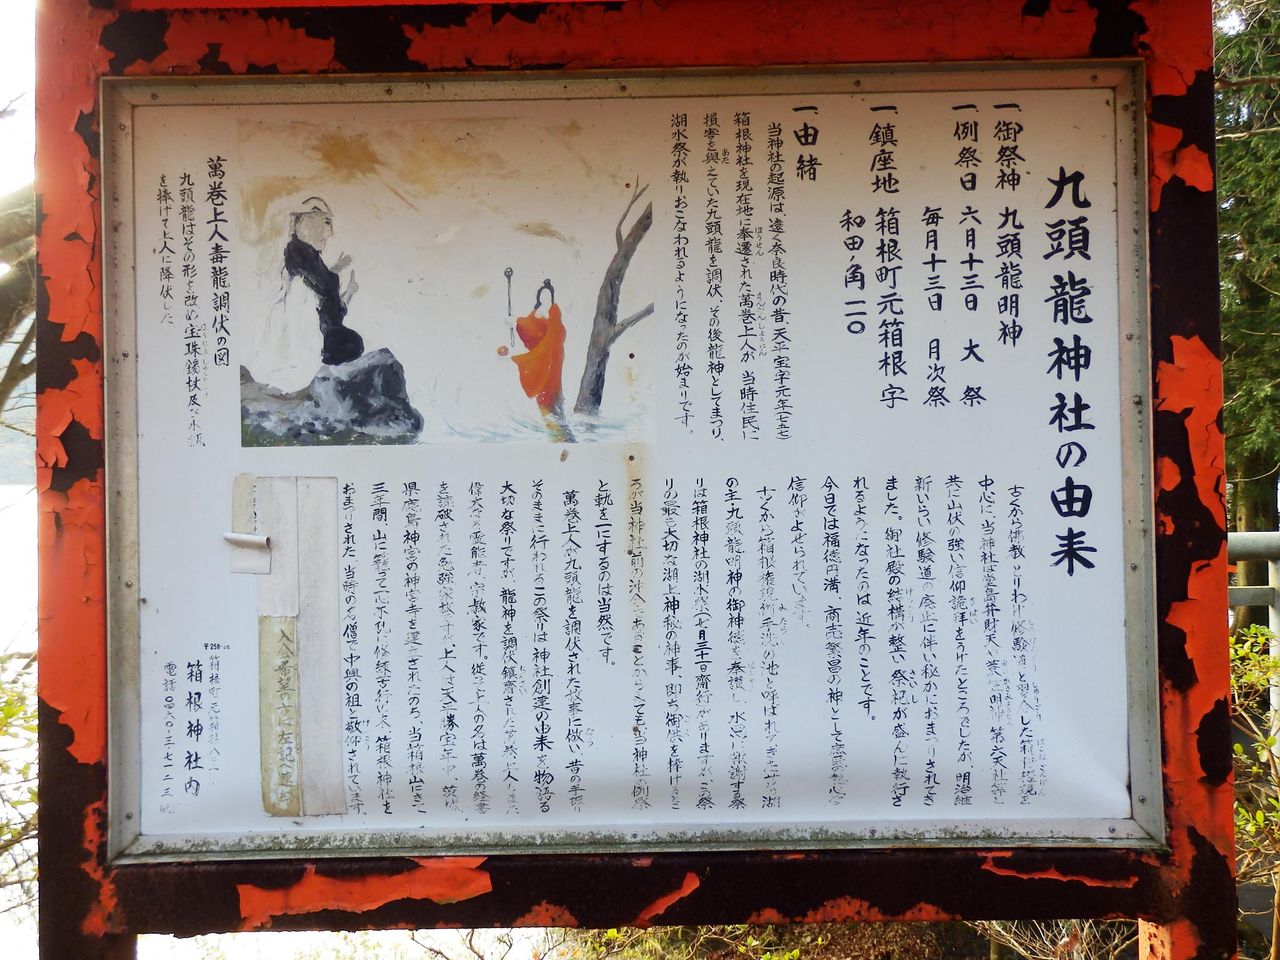 九頭龍神社の由来
一、御祭神 九頭龍明神
一、例祭日 六月十三日 大祭
毎月十三日 月次祭
一、鎮座地 箱根町元箱根字
和田ノ角一一〇
一、由緒
当神社の起源は、遠く奈良時代の昔天平宝字元年(七五七)
箱根神社を現在地に奉遷された萬巻上人が、当時住民に
損害を與えていた九頭龍を調伏、その後龍神としてまつり、
湖水祭が執りおこなわれるようになったのが始まりです。
古くから佛教、とりわけ修験道と習合した箱根権現を
中心に、当神社は堂島弁財天
共に山伏の強い信仰詭拝をうけたところでしたが、明治維
新いらい修験道の廃止に伴い秘かにおまつりされてき
ました。御社殿の結構が整い祭祀が盛んに執行さ
れるようになったのは、近年のことです。
今日では福徳円満、商売繁昌の神として
信仰がよせられています。
古くから箱根権現御手洗の池と呼ばれてきた芦ノ湖
の主・九頭龍明神の御神徳を奉讃し、水の恵に報謝する祭
りは箱根神社の湖水祭(七月三十一日齋行)がありますがこの祭
りの最も大切な湖上神秘の神事、即ち御供を捧げるとこ
ろが当神社前の沖合であることからしても、当神社の例祭
と軌を一にするのは当然です。
萬巻上人が九頭龍を調伏された故事に倣い、昔の手振
そのままに行われるこの祭りは神社創建の由来を物語る
大切な祭りですが、龍神を調伏鎮齋された萬巻上人もまた
偉大な霊能者、宗教家です。従って上人の名は萬巻の経巻
を読破された
県鹿島神宮の神宮寺を建立されたのち、当箱根山にきて
三年間、山に籠って一心不乱に修練苦行の末、箱根神社を
おまつりされた、当時の名僧で中興の祖と敬仰されています。
入会希望の方は左記へ
〒250-05
箱根町元箱根
箱根神社内
電話
萬巻上人毒龍調伏の図
九頭龍はその形を改め、宝珠錫杖及び水瓶
を捧げて上人に降伏した